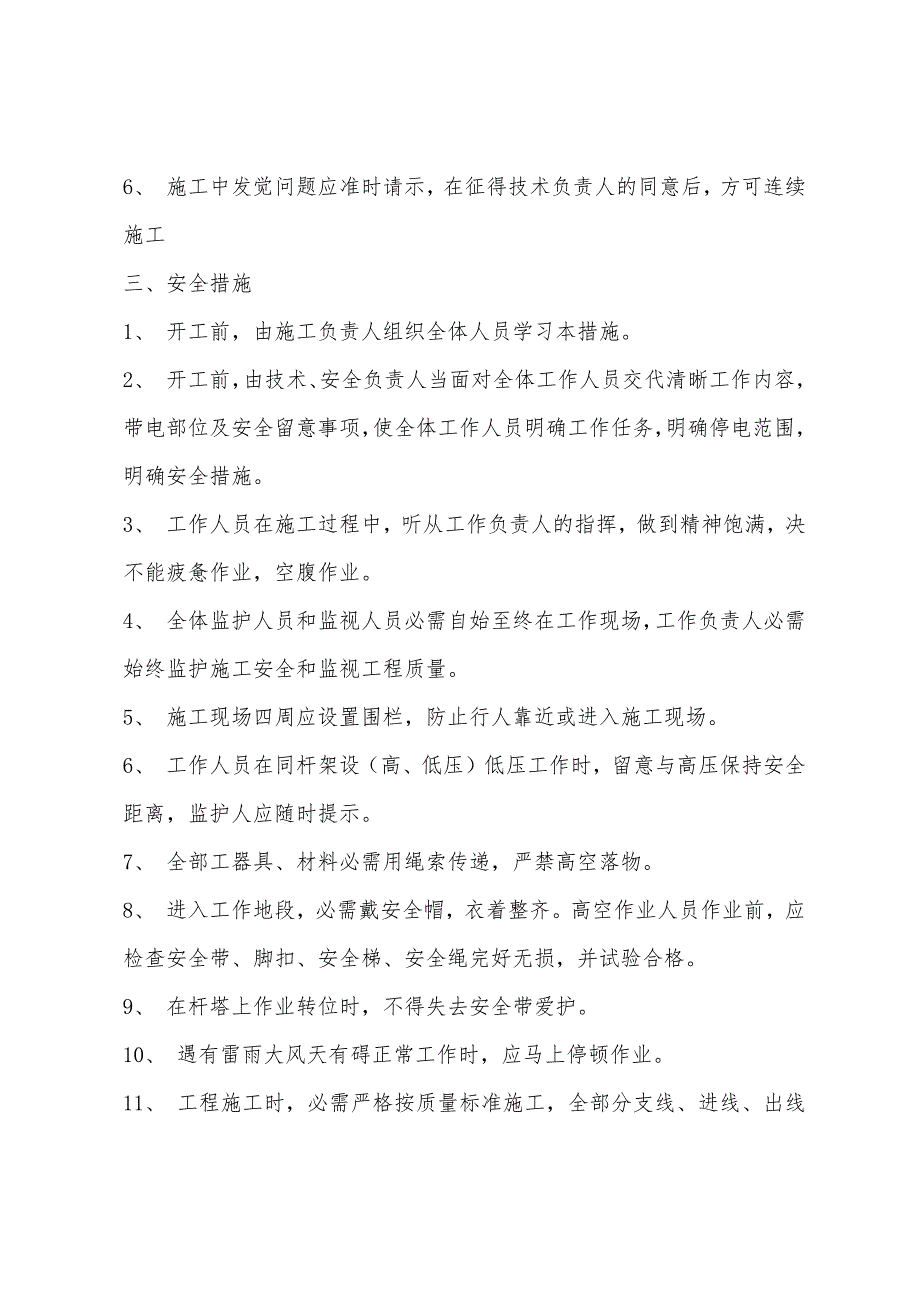 6、 施工中发觉问题应准时请示，在征得技术负责人的同意后，方可连续
施工
三、安全措施
1、 开工前，由施工负责人组织全体人员学习本措施。
2、 开工前，由技术、安全负责人当面对全体工作人员交代清晰工作内容，
带电部位及安全留意事项，使全体工作人员明确工作任务，明确停电范围，
明确安全措施。
3、 工作人员在施工过程中，听从工作负责人的指挥，做到精神饱满，决
不能疲惫作业，空腹作业。
4、 全体监护人员和监视人员必需自始至终在工作现场，工作负责人必需
始终监护施工安全和监视工程质量。
5、 施工现场四周应设置围栏，防止行人靠近或进入施工现场。
6、 工作人员在同杆架设（高、低压）低压工作时，留意与高压保持安全
距离，监护人应随时提示。
7、 全部工器具、材料必需用绳索传递，严禁高空落物。
8、 进入工作地段，必需戴安全帽，衣着整齐。高空作业人员作业前，应
检查安全带、脚扣、安全梯、安全绳完好无损，并试验合格。
9、 在杆塔上作业转位时，不得失去安全带爱护。
10、 遇有雷雨大风天有碍正常工作时，应马上停顿作业。
11、 工程施工时，必需严格按质量标准施工，全部分支线、进线、出线